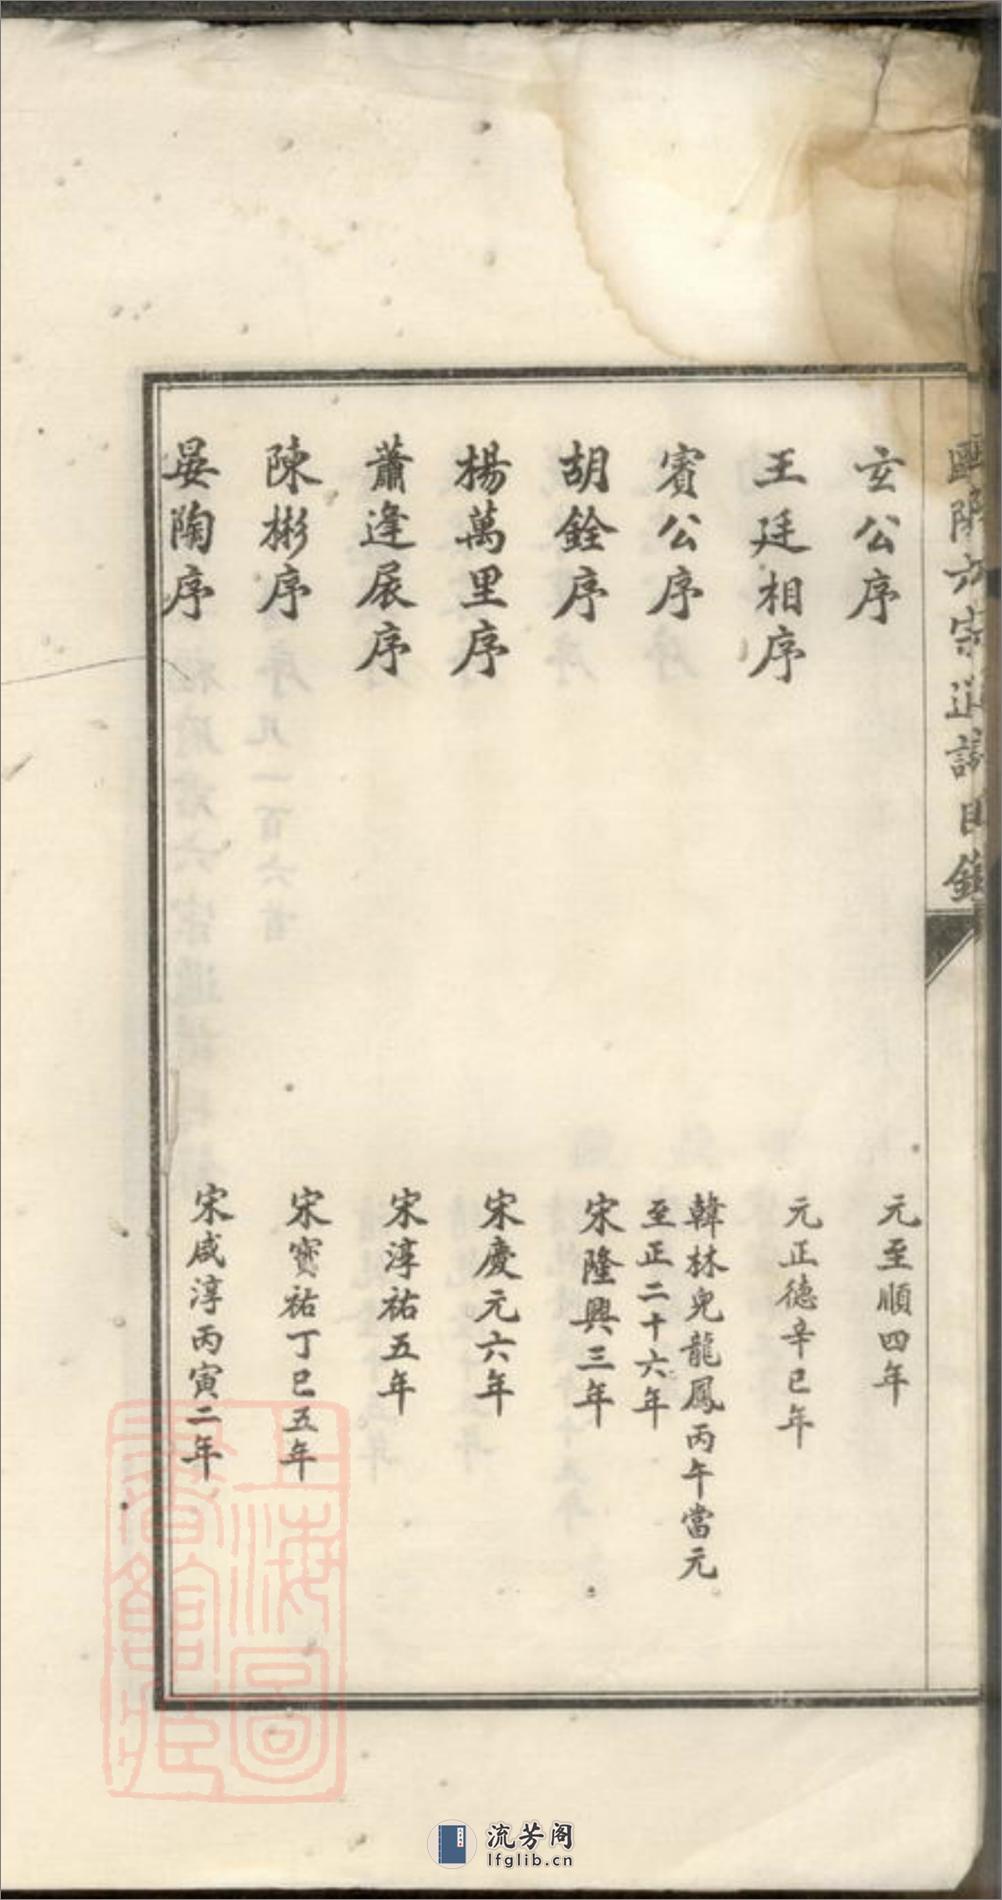 歐陽六宗通譜目錄
玄公序
元至順四年
王廷相序
元正德辛巳年
賓公序
韓林兒龍鳳丙午當元
至正二十六年
胡銓序
宋隆興三年
楊萬里序
宋慶元六年
蕭逢辰序
宋淳祐五年
陳彬序
宋寶祐丁巳五年
晏陶序
宋咸淳丙寅二年
上海圖書館藏
流芳阁
lfglib.cn